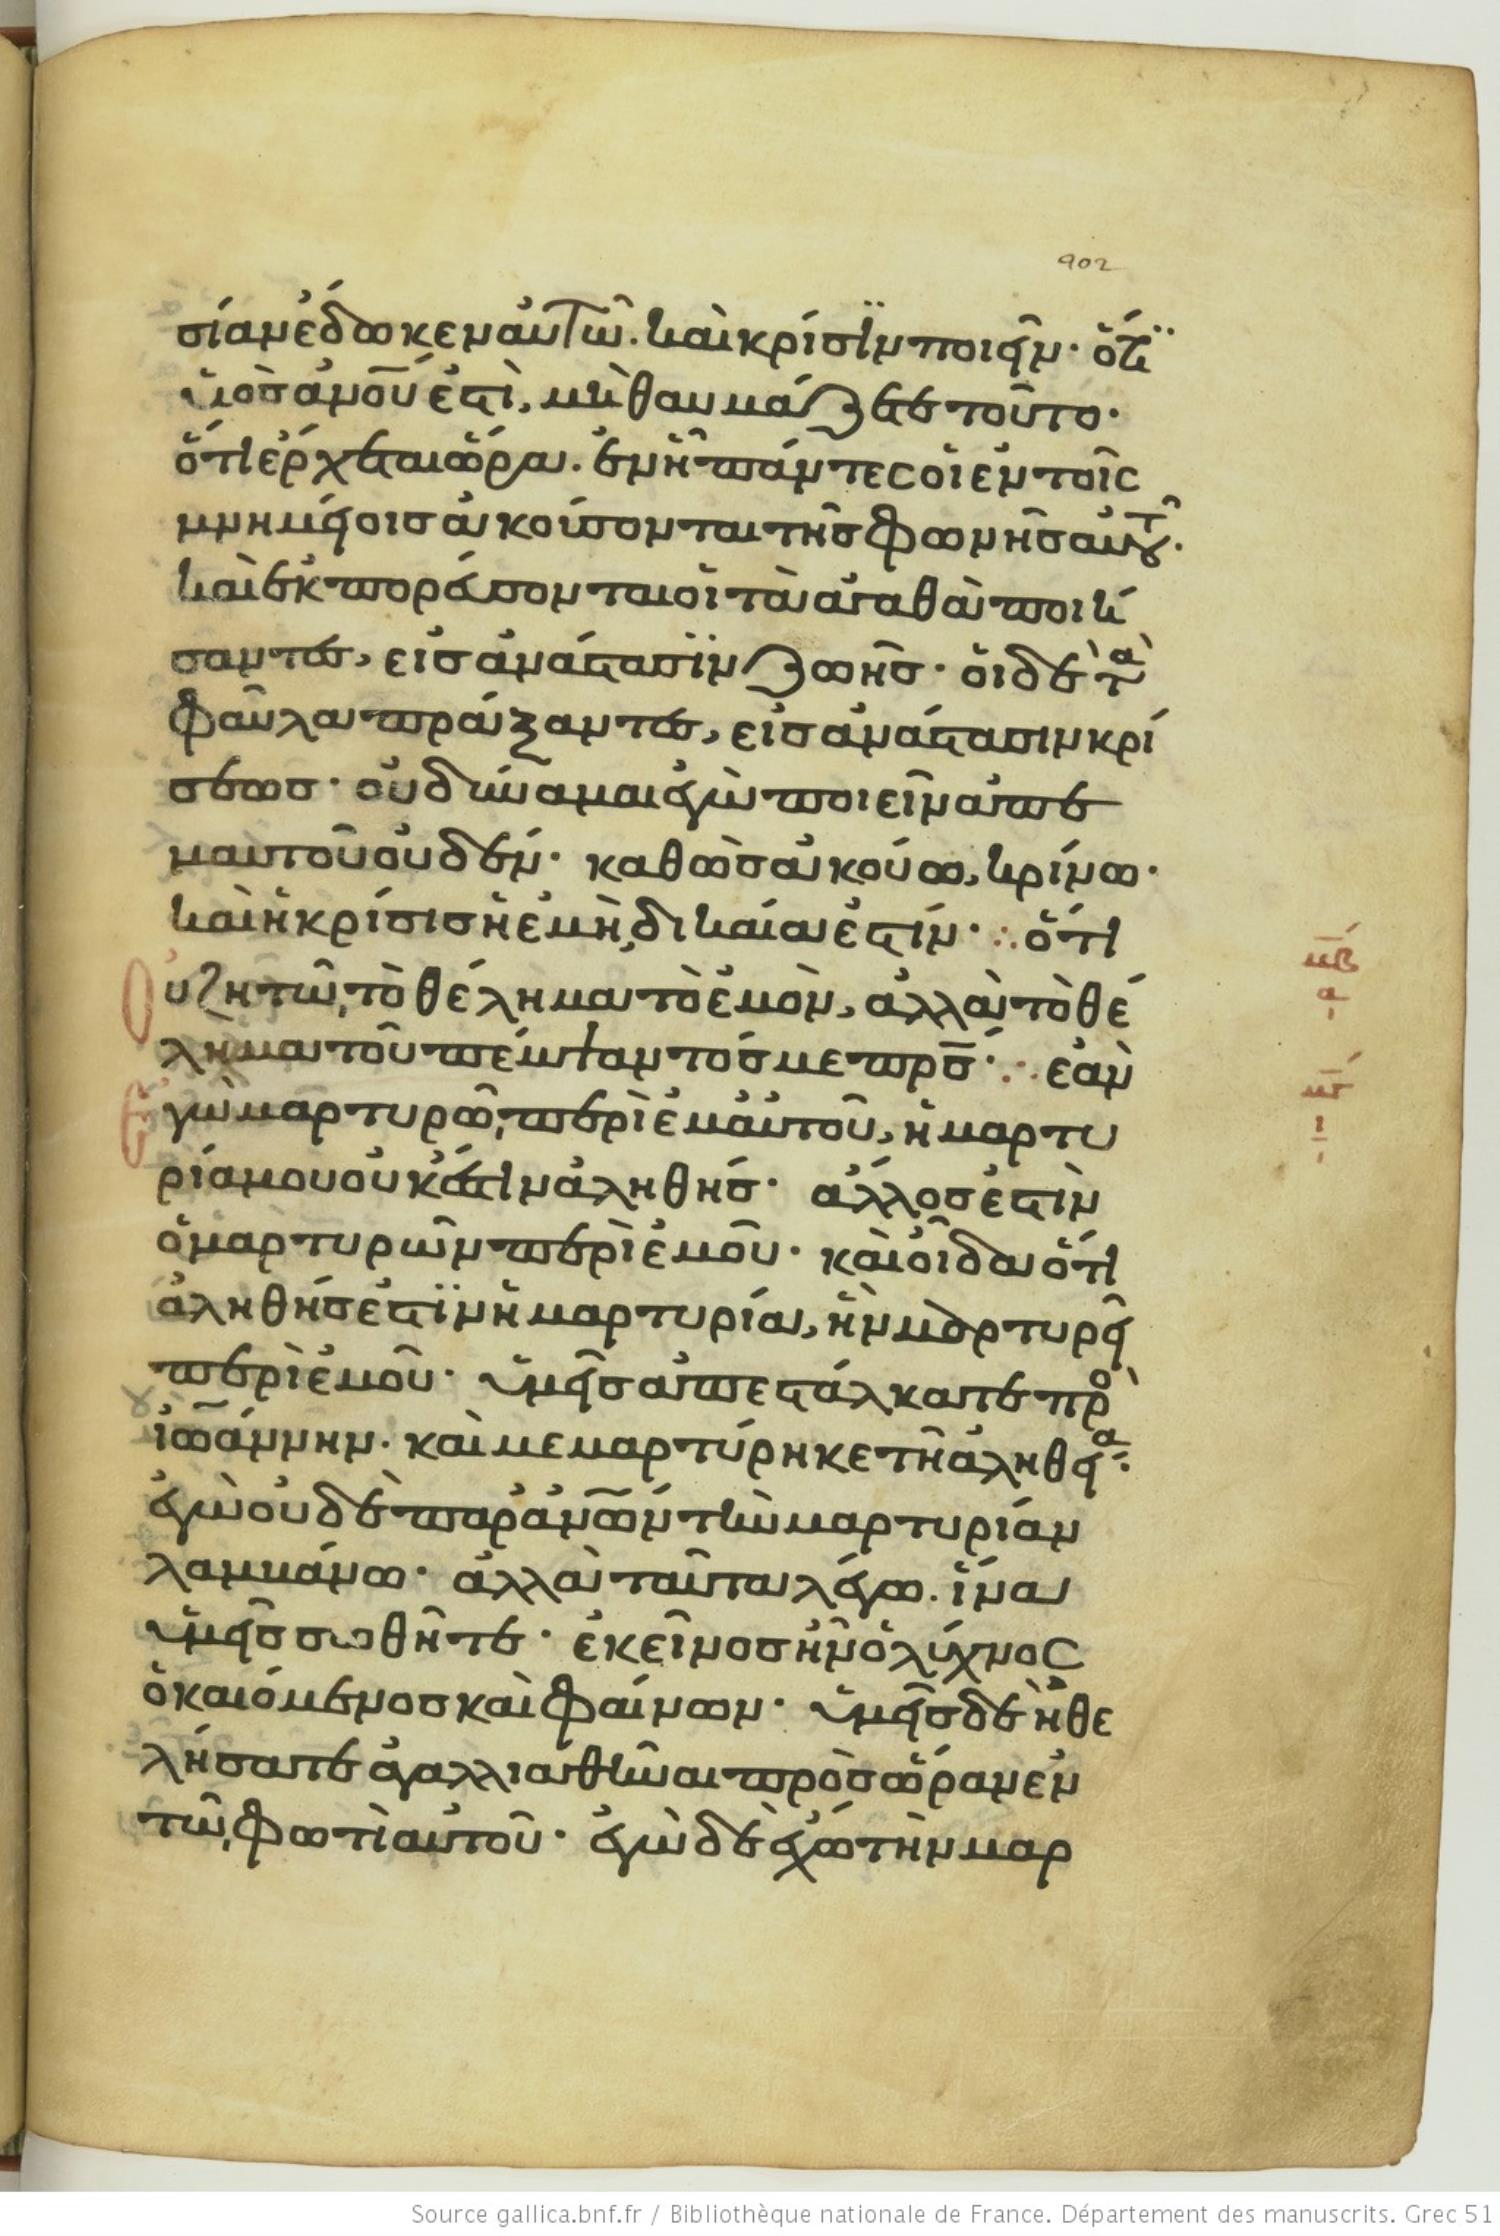 202
σίαν ἔδωκεν αὐτῶ. καὶ κρίσϊν ποιεῖν· ὅτϊ
υἱὸς ἀνοῦ ἐστὶ, μὴ θαυμάζετε τοῦτο·
ὅτι ἔρχεται ὥρα. ἐν ἧ πάντες οἱ ἐν τοῖς
μνημείοις ἀκούσονται τῆς φωνῆς αὐτοῦ.
καὶ ἐκπορεύσονται οἱ τὰ ἀγαθὰ ποιή
σαντες, εἰς ἀνάστασϊν ζωῆς· οἱ δὲ τὰ
φαῦλα πράξαντες, εἰς ἀνάστασιν κρί
σεως· οὐ δύναμαι ἐγὼ ποιεῖν ἀπ ἐ
μαυτοῦ οὐδέν· καθὼς ἀκούω, κρίνω·
καὶ ἡ κρίσις ἡ ἐμὴ, δικαία ἐστίν· ∴ ὅτι
Οὐ ζητῶ, τὸ θέλημα τὸ ἐμὸν, ἀλλὰ τὸ θέ
λημα τοῦ πέμψαντός με πρς· ∴ ἐὰν
Ἐγὼ μαρτυρῶ, περὶ ἐμαυτοῦ, ἡ μαρτυ
ρία μου οὐκ ἔστιν ἀληθής· ἄλλος ἐστὶν
ὁ μαρτυρῶν περὶ ἐμοῦ· καὶ οἶδα ὅτι
ἀληθής ἐστϊν ἡ μαρτυρία, ἣν μαρτυρεῖ
περὶ ἐμοῦ· ὑμεῖς ἀπεστάλκατε πρὸ
ἰωάννην. καὶ μεμαρτύρηκε τῆ ἀληθείᾳ·
ἐγὼ οὐδὲ παρὰ ἀνῶν τὴν μαρτυρίαν
λαμβάνω· ἀλλὰ ταῦτα λέγω. ἵνα
ὑμεῖς σωθῆτε· ἐκεῖνος ἦν ὁ λύχνος
ὁ καιόμενος καὶ φαίνων· ὑμεῖς δὲ ἠθε
λήσατε ἀγαλλιασθῆναι πρὸς ὥραν ἐν
τῶ, φωτὶ αὐτοῦ· ἐγὼ δὲ ἔχω τὴν μαρ
μβ
α
μγ
ι
Source gallica.bnf.fr / Bibliothèque nationale de France. Département des manuscrits. Grec 51